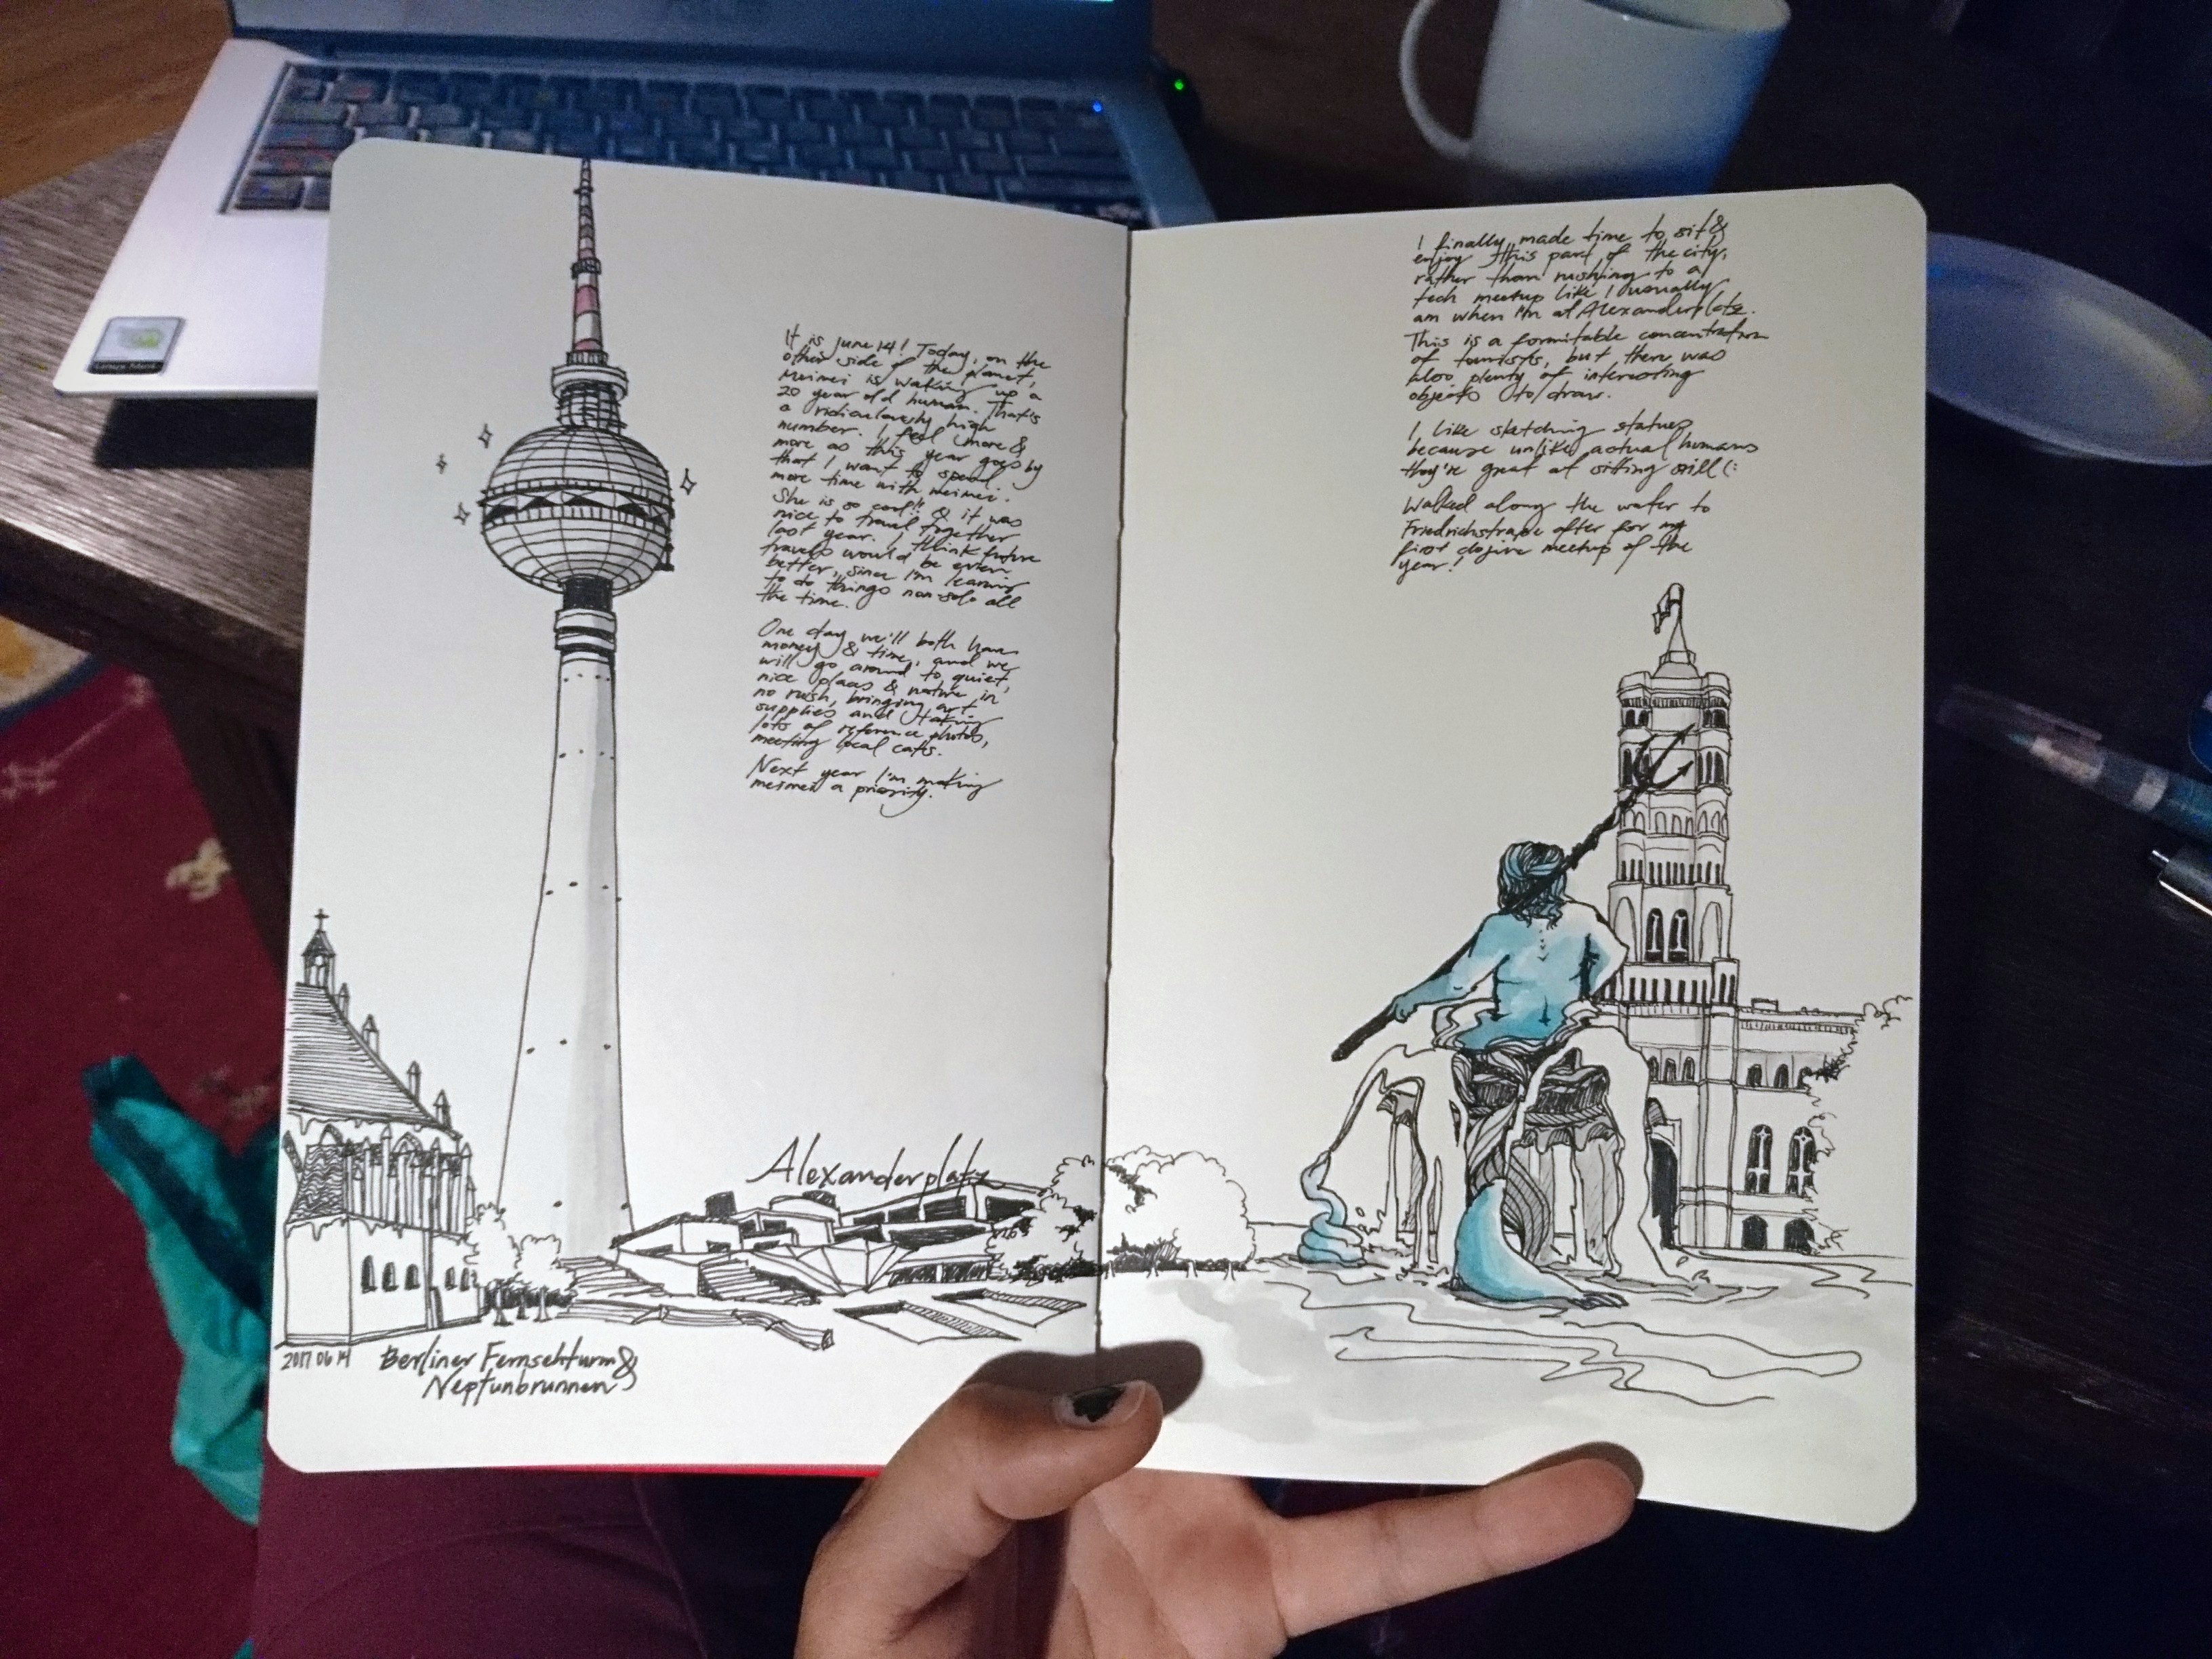 It is June 14! Today, on the
other side of the planet,
Meimei is waking up a
20 year old human. That's
a ridiculously high
number. I feel more &
more as this year goes by
that I want to spend
more time with meimei.
She is so cool!! & it was
nice to travel together
last year. I think future
travels would be even
better, since I'm learning
to do things non-solo all
the time.
One day we'll both have
money & time, and we
will go around to quiet,
nice places & nature in
no rush, bringing art
supplies and taking
lots of reference photos,
meeting local cats.
Next year I'm making
meimei a priority.
Alexanderplatz
2017 06 14
Berliner Fernsehturm &
Neptunbrunnen
I finally made time to sit &
enjoy this part of the city,
rather than rushing to a
tech meetup like I usually
am when I'm at Alexanderplatz.
This is a formitable concentration
of tourists, but there was
also plenty of interesting
objects to draw.
I like sketching statues
because unlike actual humans
they're great at sitting still (:
Walked along the water to
Friedrichstraße after for my
first clojure meetup of the
year!